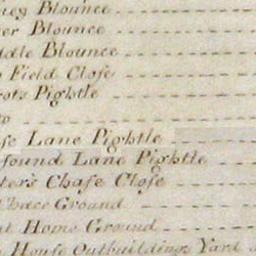 Blounce
Blounce
Blounce
Field Close
Pightle
Lane Pightle
found Lane Pightle
ter's Chase Close
Chace Ground
Home Ground
House Outbuildings Yard